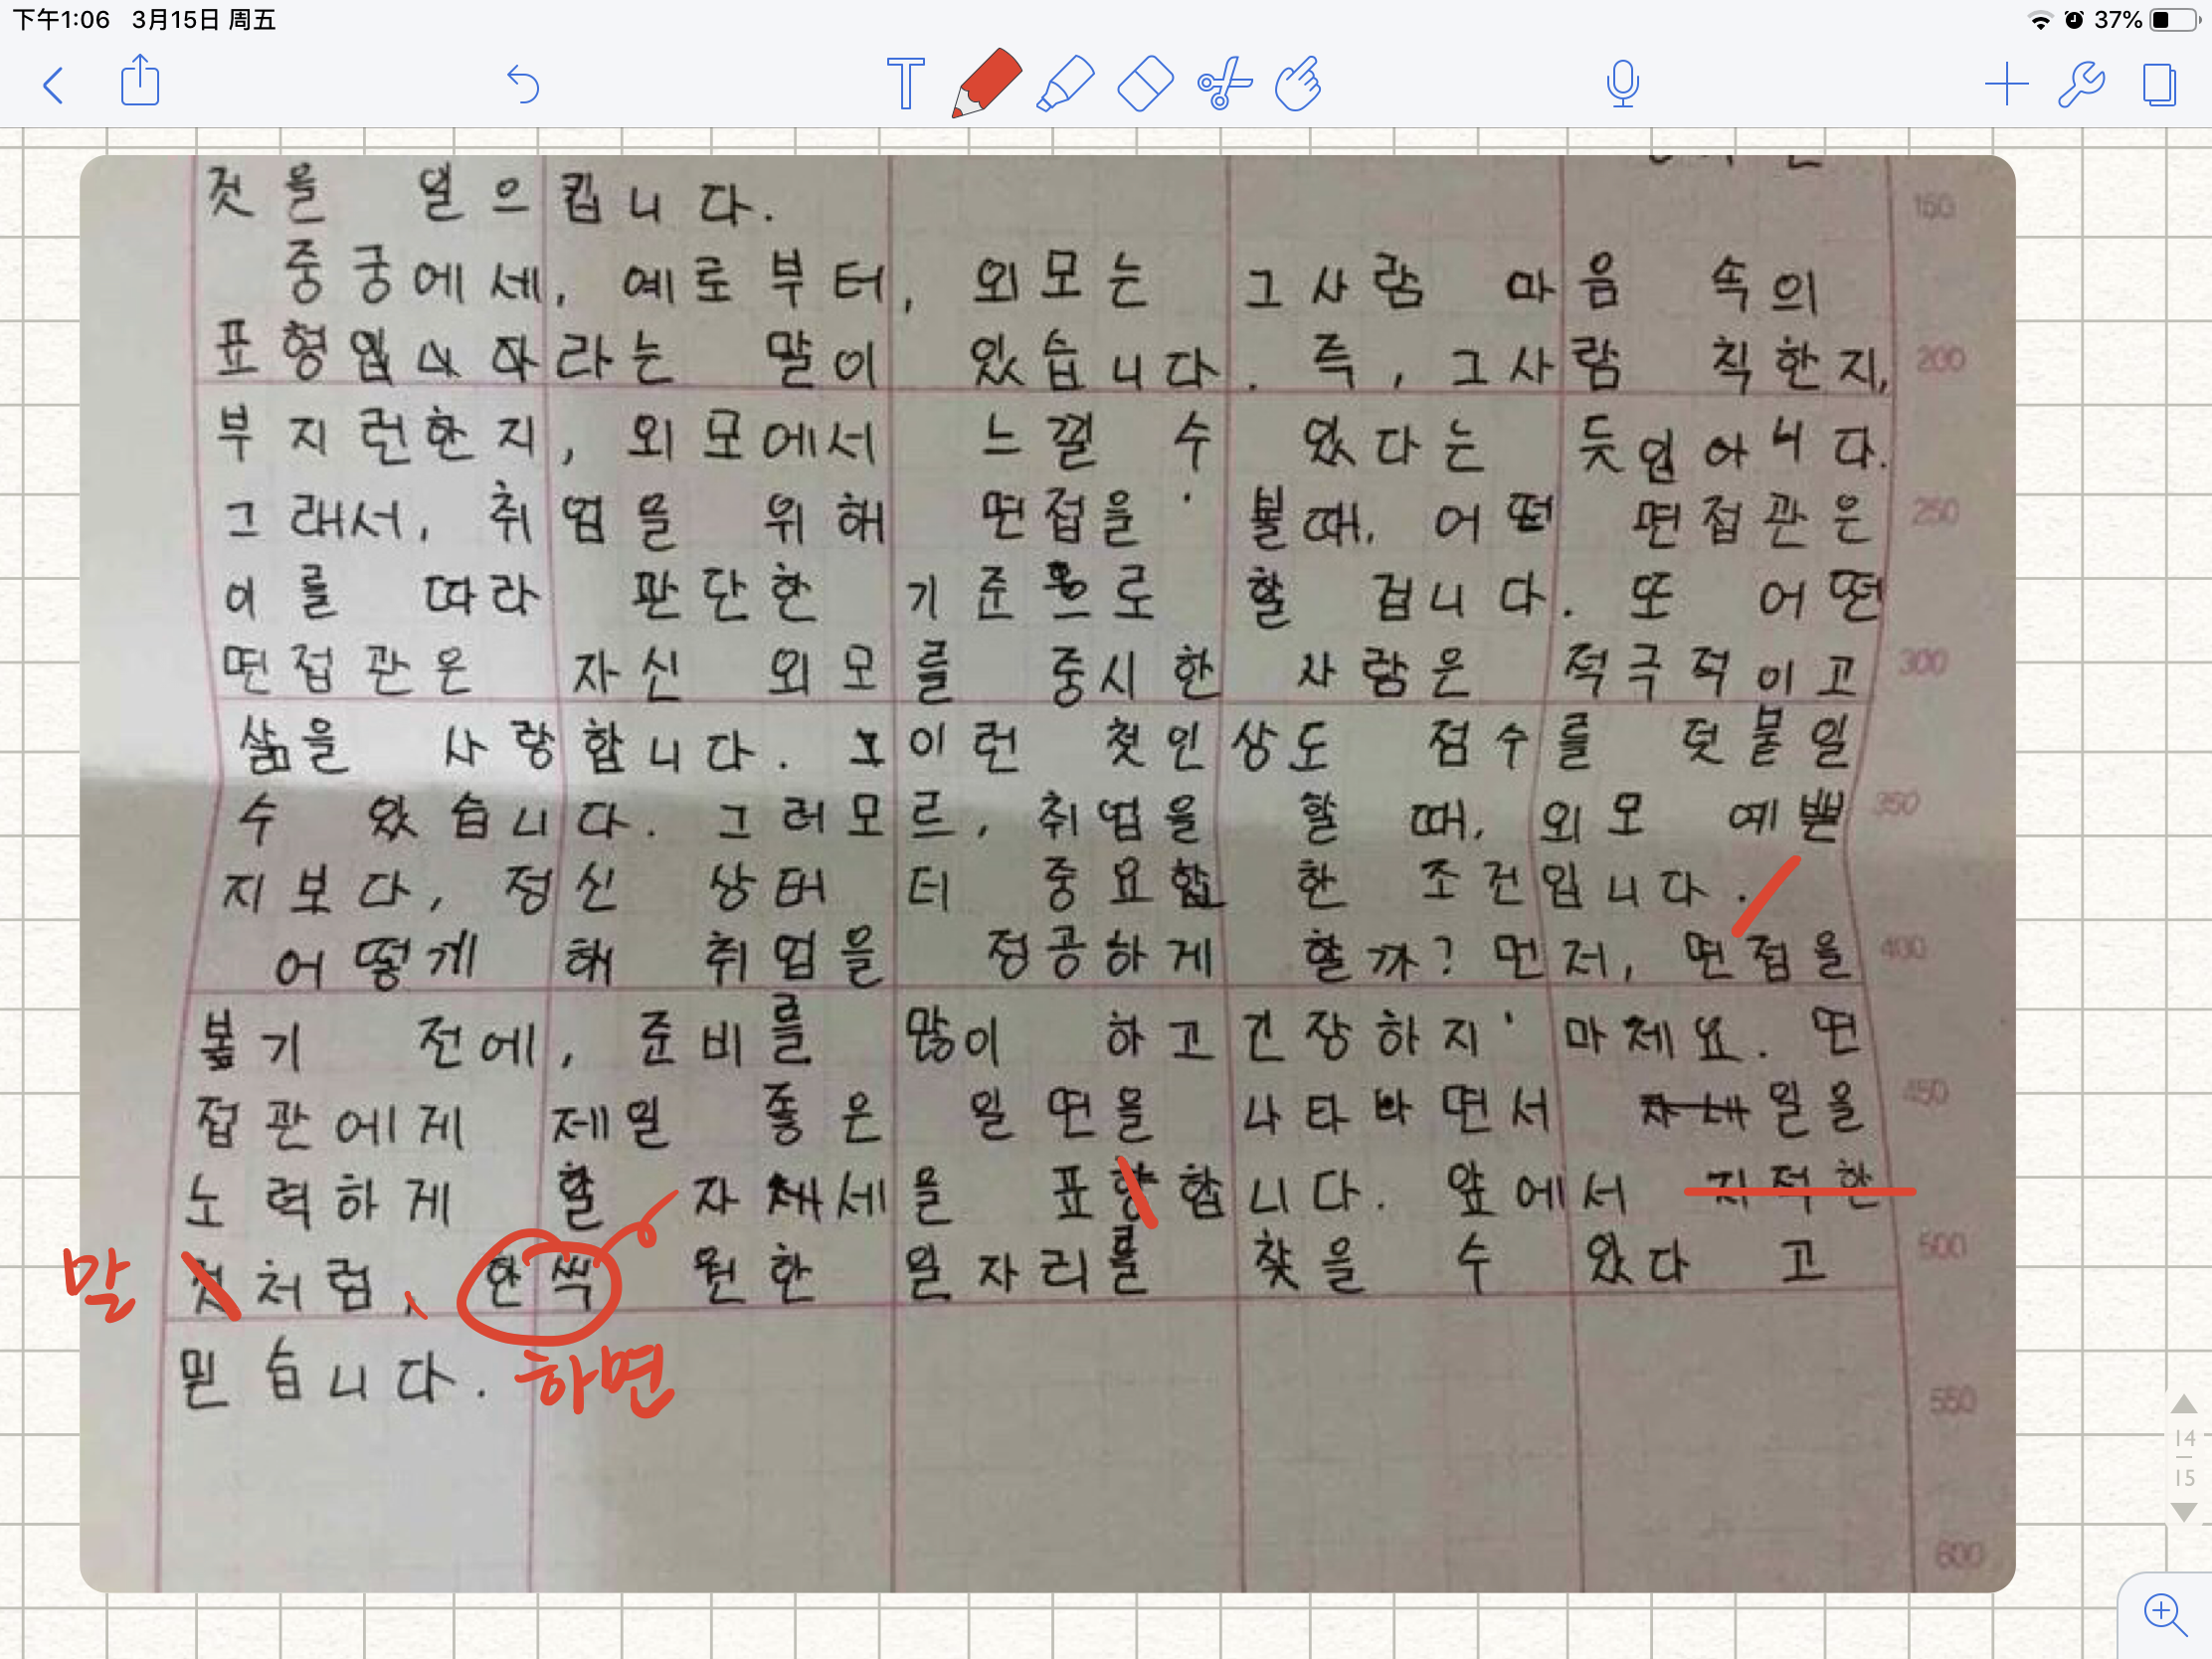 下午1:06 3月15日 周五
37%
것을 일으킵니다. 150
중궁에세, 예로부터, 외모는 그사람 마음 속의
표형입니다라는 말이 있습니다. 즉, 그사람 칙한지, 200
부지런한지, 외모에서 느낄 수 있다는 듯입니다.
그래서, 취업을 위해 면접을 볼때, 어떤 면접관은 250
이를 따라 판단한 기준으로 할 겁니다. 또 어떤
면접관은 자신 외모를 중시한 사람은 적극적이고 300
삶을 사랑합니다. 이런 첫인상도 점수를 덧붙일
수 있습니다. 그러모르, 취업을 할 때, 외모 예쁜 350
지보다, 정신 상터 더 중요한 조건입니다.
어떻게 해 취업을 정공하게 할까? 먼저, 면접을 400
볿기 전에, 준비를 많이 하고 긴장하지 마세요. 면
접관에게 제일 좋은 일면을 나타나면서 일을 450
노력하게 할 자세을 표향합니다. 앞에서 지적한
말 것처럼, 한씩 원한 일자리를 찾을 수 있다고 500
믿습니다. 하면
550
600
14
15